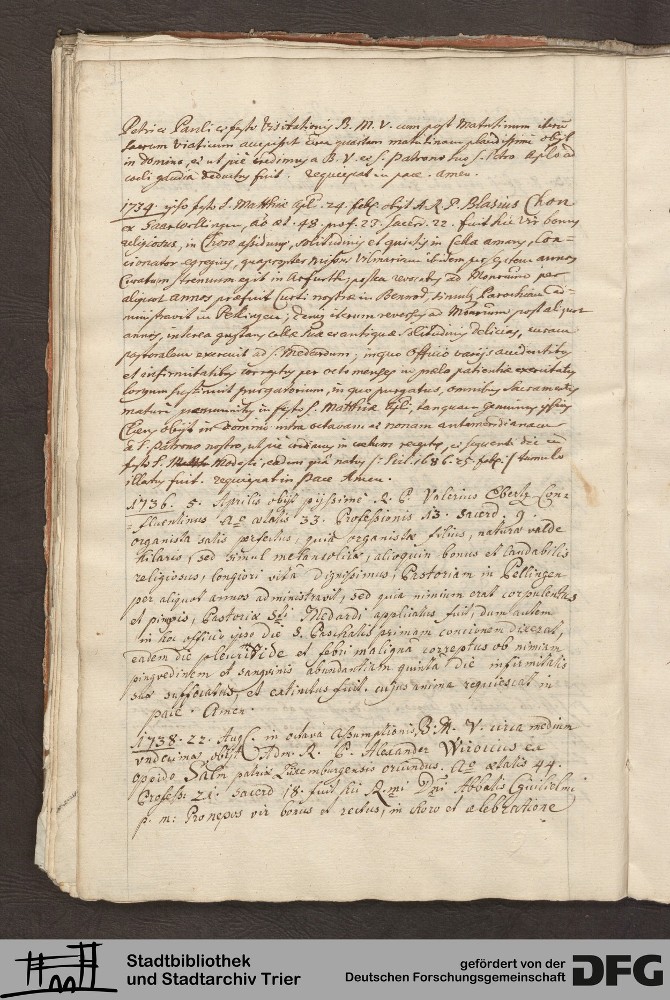 Petri et Pauli et festo Visitationis B. M. V. cum post Matutinum
sacrum viaticum accepisset circa quartam matutinam placidissime obijt
in Domino, et ut pie credimus a B. V. et S. Patrono suo S. Petro Aplo ad
coeli gaudia deductus fuit. requiescat in pace. amen.
1734. ipso festo S. Matthiae Apli. 24. feb. obijt A. R. P. Blasius Chon
ex Saarwellingen, ao aet. 48. prof. 27. sacerd. 22. fuit hic vir bonus
religiosus, in Choro assiduus, solitudinis et quietis in Cella amans, Con=
cionator egregius, quapropter missus Vilmariam ibidem per octem annos
Curatum strenuum egit in Arfurth, postea revocatus ad Monrium per
aliquot annos praefuit Curti nostrae in Benrod, simulq Parochiam ad=
ministravit in Pellingen; denuo iterum reversus ad Monrium post aliquot
annos, interea gustans cellae suae et antiquae solitudinis delicias, curam
pastoralem exercuit ad S. Medardum; inquo officio varijs accidentibus
et infirmitatibus correptus per octo menses in praelo patientiae exercitatus
longum sustinuit purgatorium, in quo purgatus, omnibus Sacramentis
mature praemunitus in festo S. Matthiae Apli, tanquam genuinus ipsius
Cliens obijt in Domino intra octavam et nonam antemeridianam
a S. Patrono nostro, ut pie credimus in coelum receptus, et sequenti die
festo S. Modesti, eadem qua natus s. fuit 1686. 25. feb. / tumulo
illatus fuit. requiescat in pace Amen.
1736. 5. Aprilis obijt pijssime R. P. Valerius Ebertz Con=
=fluentinus Ao aetatis 33. Professionis 13. Sacerd. 9.
organista satis perfectus, quia organistae filius, naturae valde
hilaris, sed simul melancolicae, alioquin bonus et laudabilis
religiosus, longiori vita dignissimus, Pastoriam in Pellingen
per aliquot annos administravit, sed quia nimium erat corpulentus
et pinguis, Pastoriae Sti Medardi applicatus fuit, dum autem
in hoc officio ipso die S. Paschalis primam concionem dixerat,
eadem die pleuritide et febri maligna correptus ob nimiam
pinguedinem et sanguinis abundantiam quinta die infirmitatis
suae suffocatus, et extinctus fuit. cujus anima requiescat in
pace. Amen.
1738. 22. Aug. in octava Assumptionis B. M. V. circa mediam
undecimam obijt Adm. R. P. Alexander Wiroicus ex
oppido Salm patriae Luxemburgensis oriundus. Ao aetatis 44.
Profess: 21. Sacerd 18. fuit hic Rmi Dni Abbatis Guilielmi
p. m: Pronepos vir bonus et rectus, in choro et celebratione
Stadtbibliothek
und Stadtarchiv Trier
gefördert von der
Deutschen Forschungsgemeinschaft
DFG